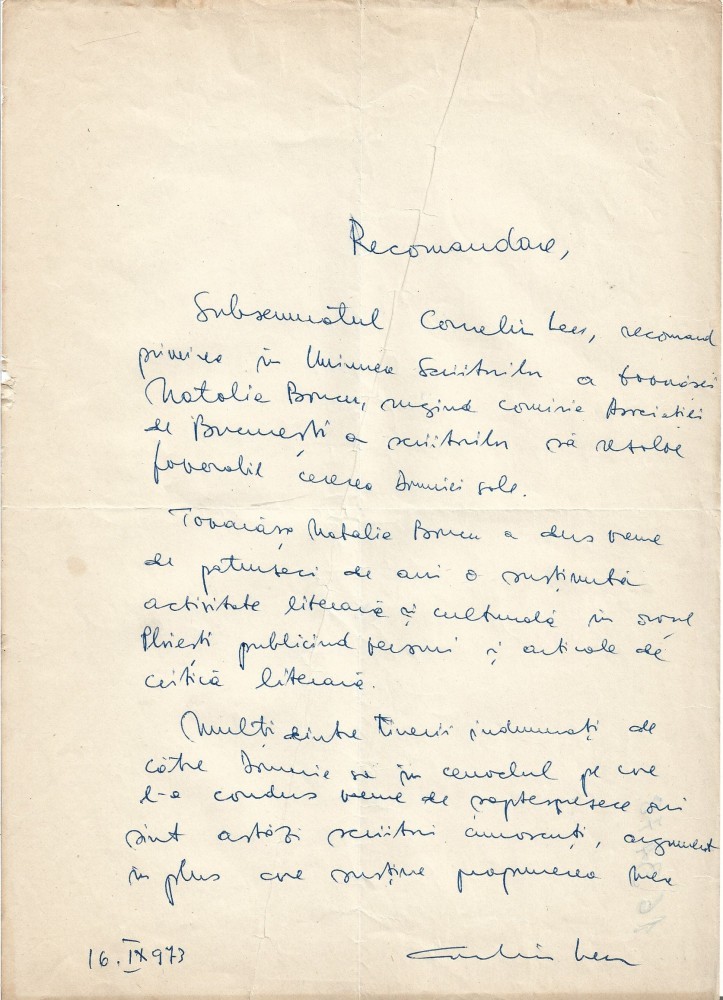 Recomandare,
Subsemnatul Corneliu Leu, recomand
primirea în Uniunea Scriitorilor a tovarășei
Natalia Brucu, rugînd comisia Asociației
de București a scriitorilor să rezolve
favorabil cererea Domniei sale.
Tovarășa Natalia Brucu a dus vreme
de patruzeci de ani o susținută
activitate literară și culturală în orașul
Ploiești publicînd versuri și articole de
critică literară.
Mulți dintre tinerii îndrumați de
către Domnia sa în cenaclul pe care
l-a condus vreme de șaptesprezece ani
sînt astăzi scriitori cunoscuți, argument
în plus care susține propunerea mea
16.IX973